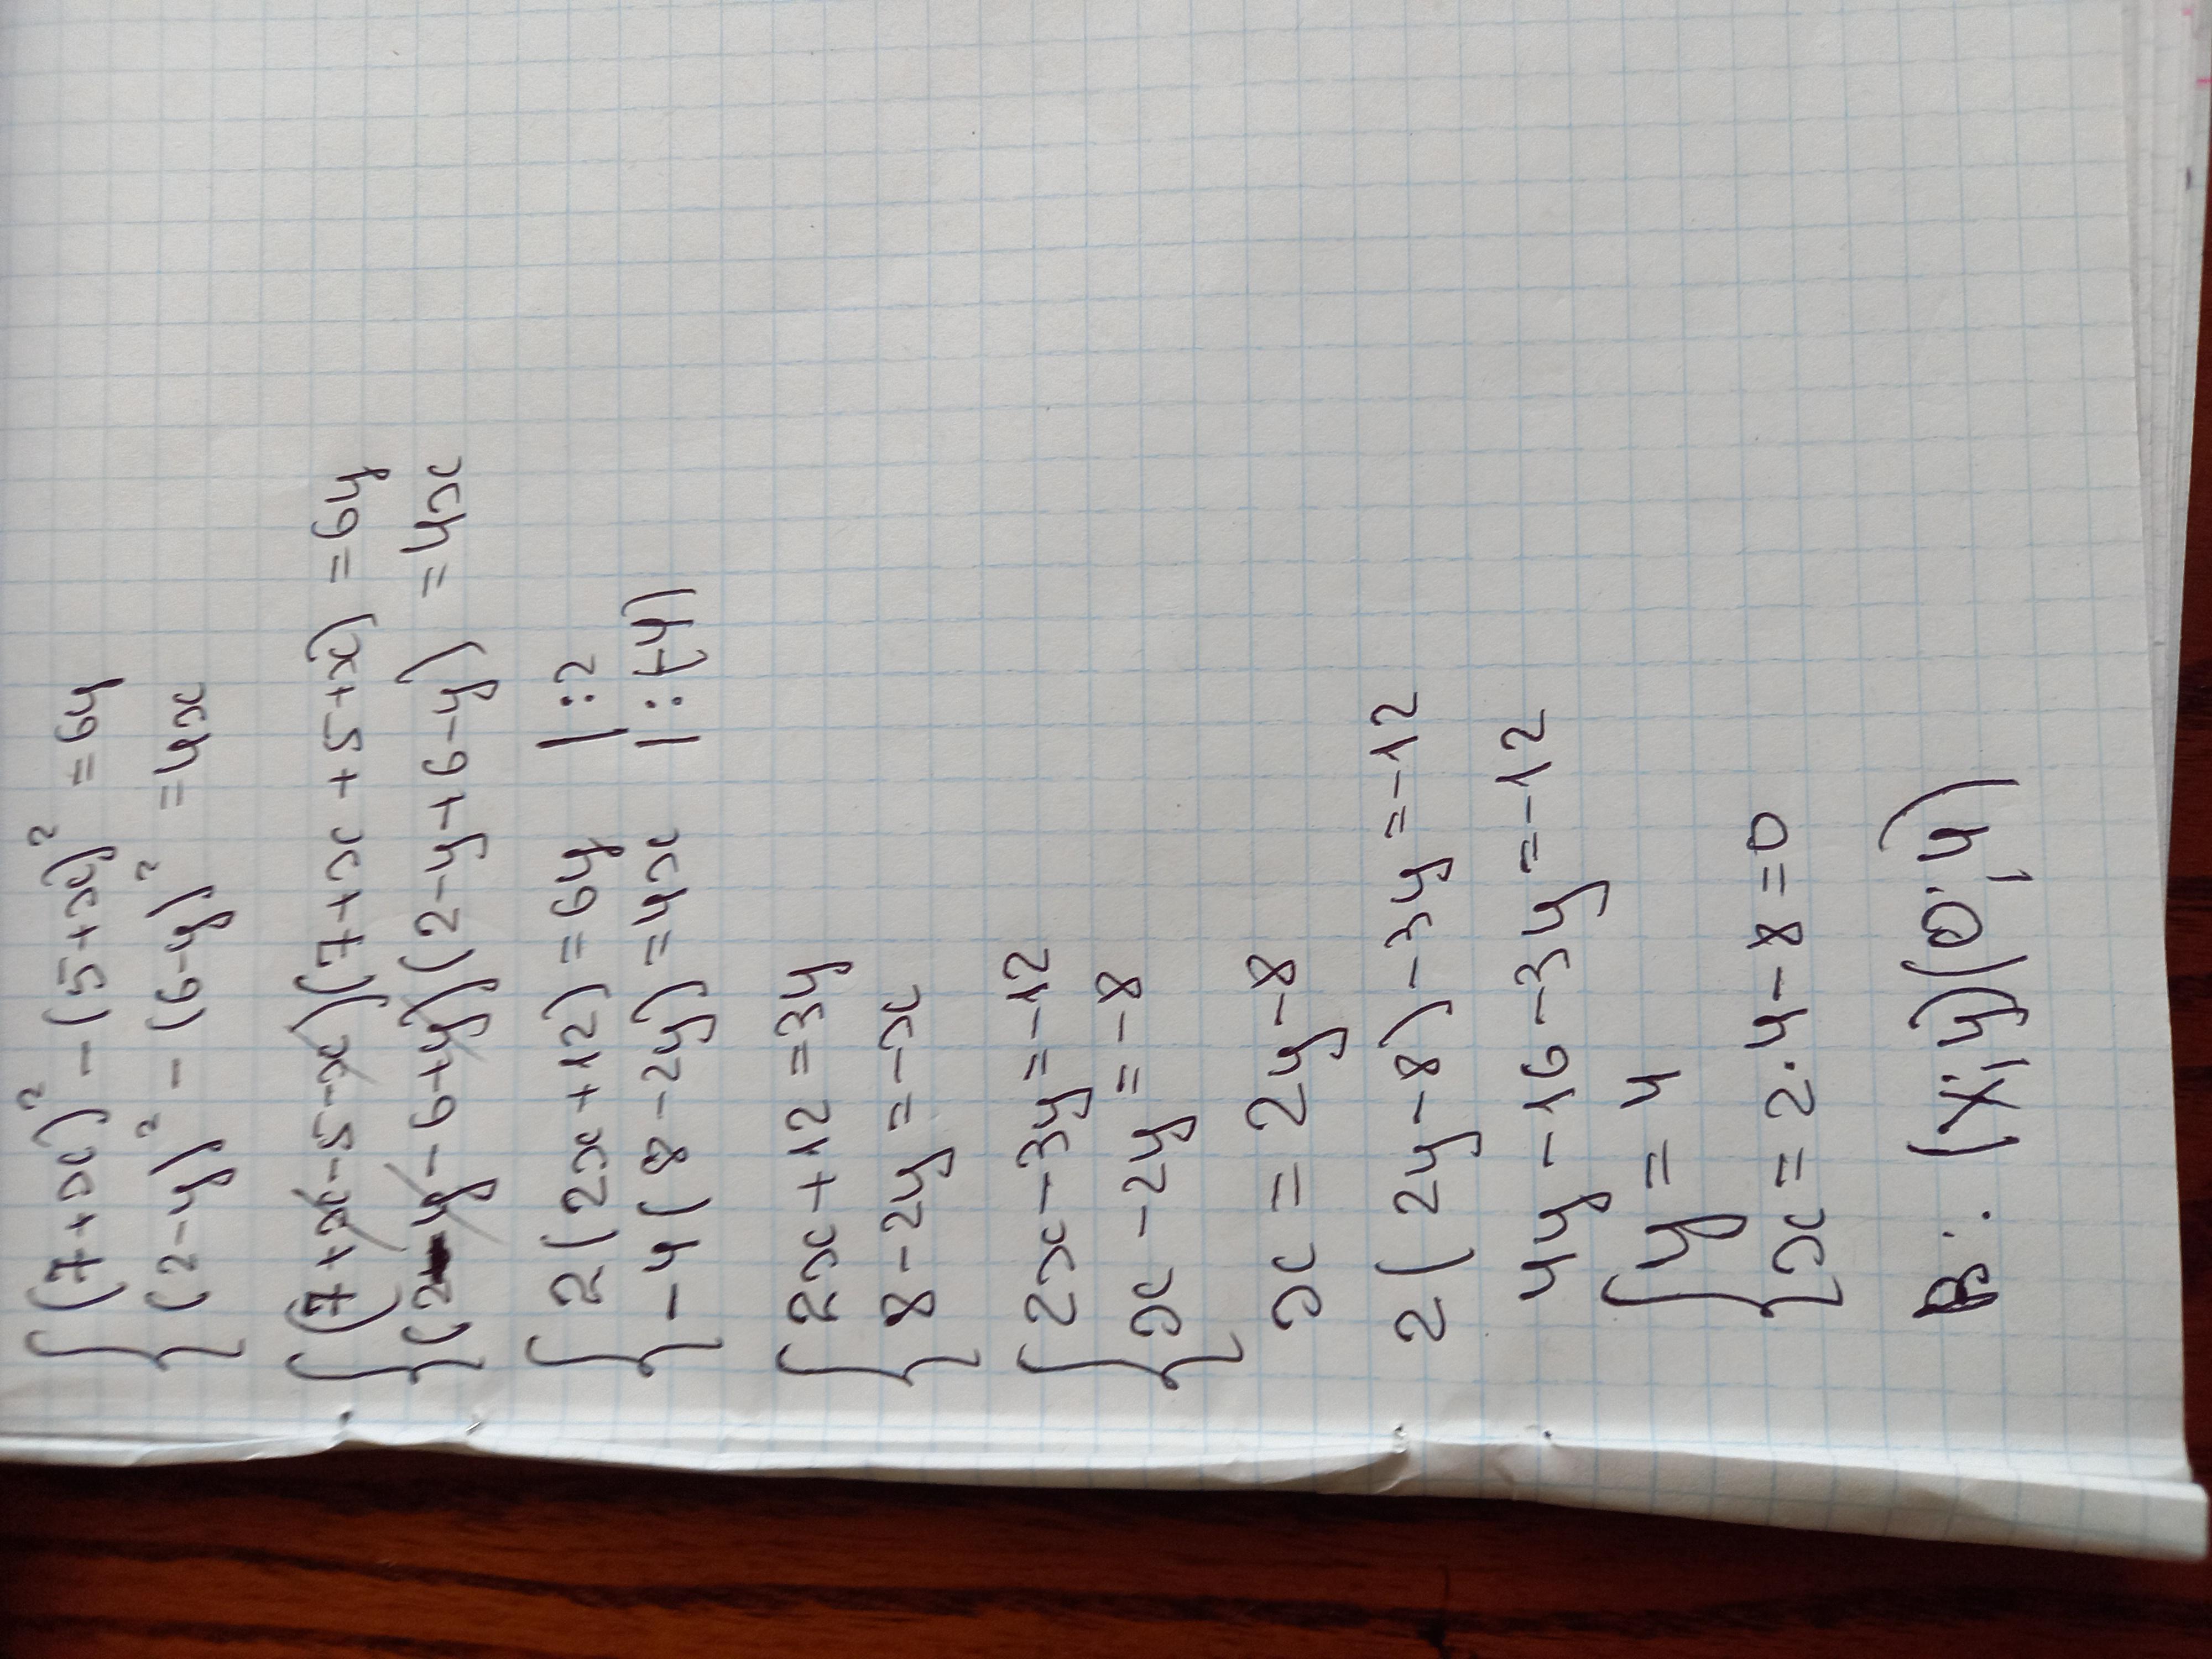 {(7+x)² - (5+x)² = 6y
(2-y)² - (6-y)² = 4x
{(7+x-5-x)(7+x+5+x) = 6y
(2-y-6+y)(2-y+6-y) = 4x
{2(2x+12) = 6y |:2
-4(8-2y) = 4x |:(-4)
{2x+12 = 3y
8-2y = -x
{2x-3y = -12
x-2y = -8
x = 2y-8
2(2y-8)-3y = -12
4y-16-3y = -12
{y = 4
x = 2·4-8 = 0
В: (x;y)(0;4)